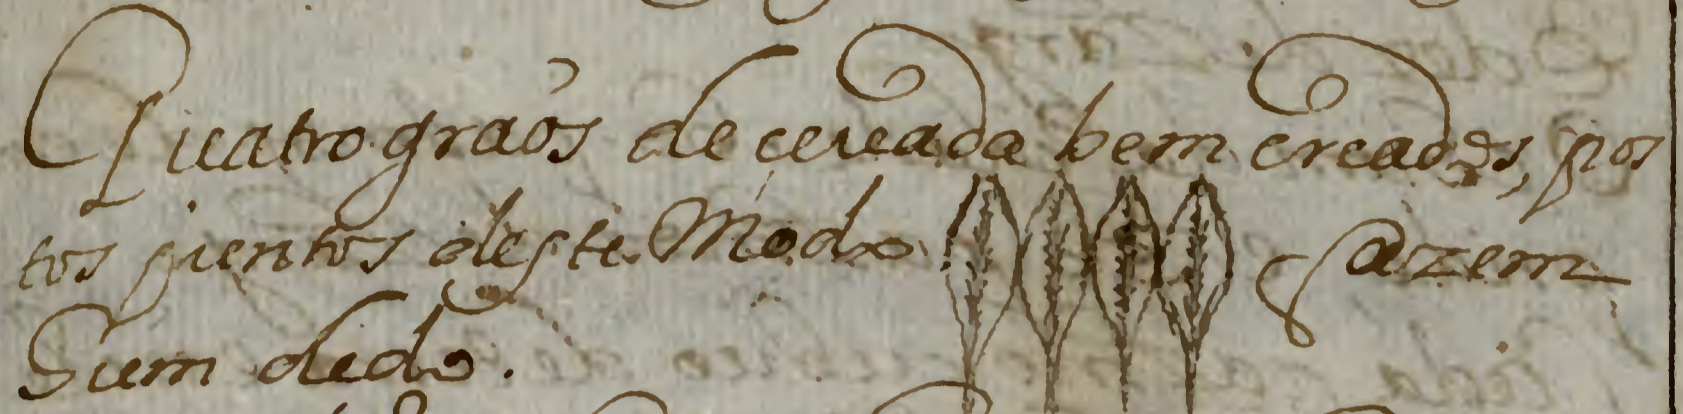 Quatro graõs de cevada bem creados, pos
tos juentos deste Modo fazem
hum dedo.